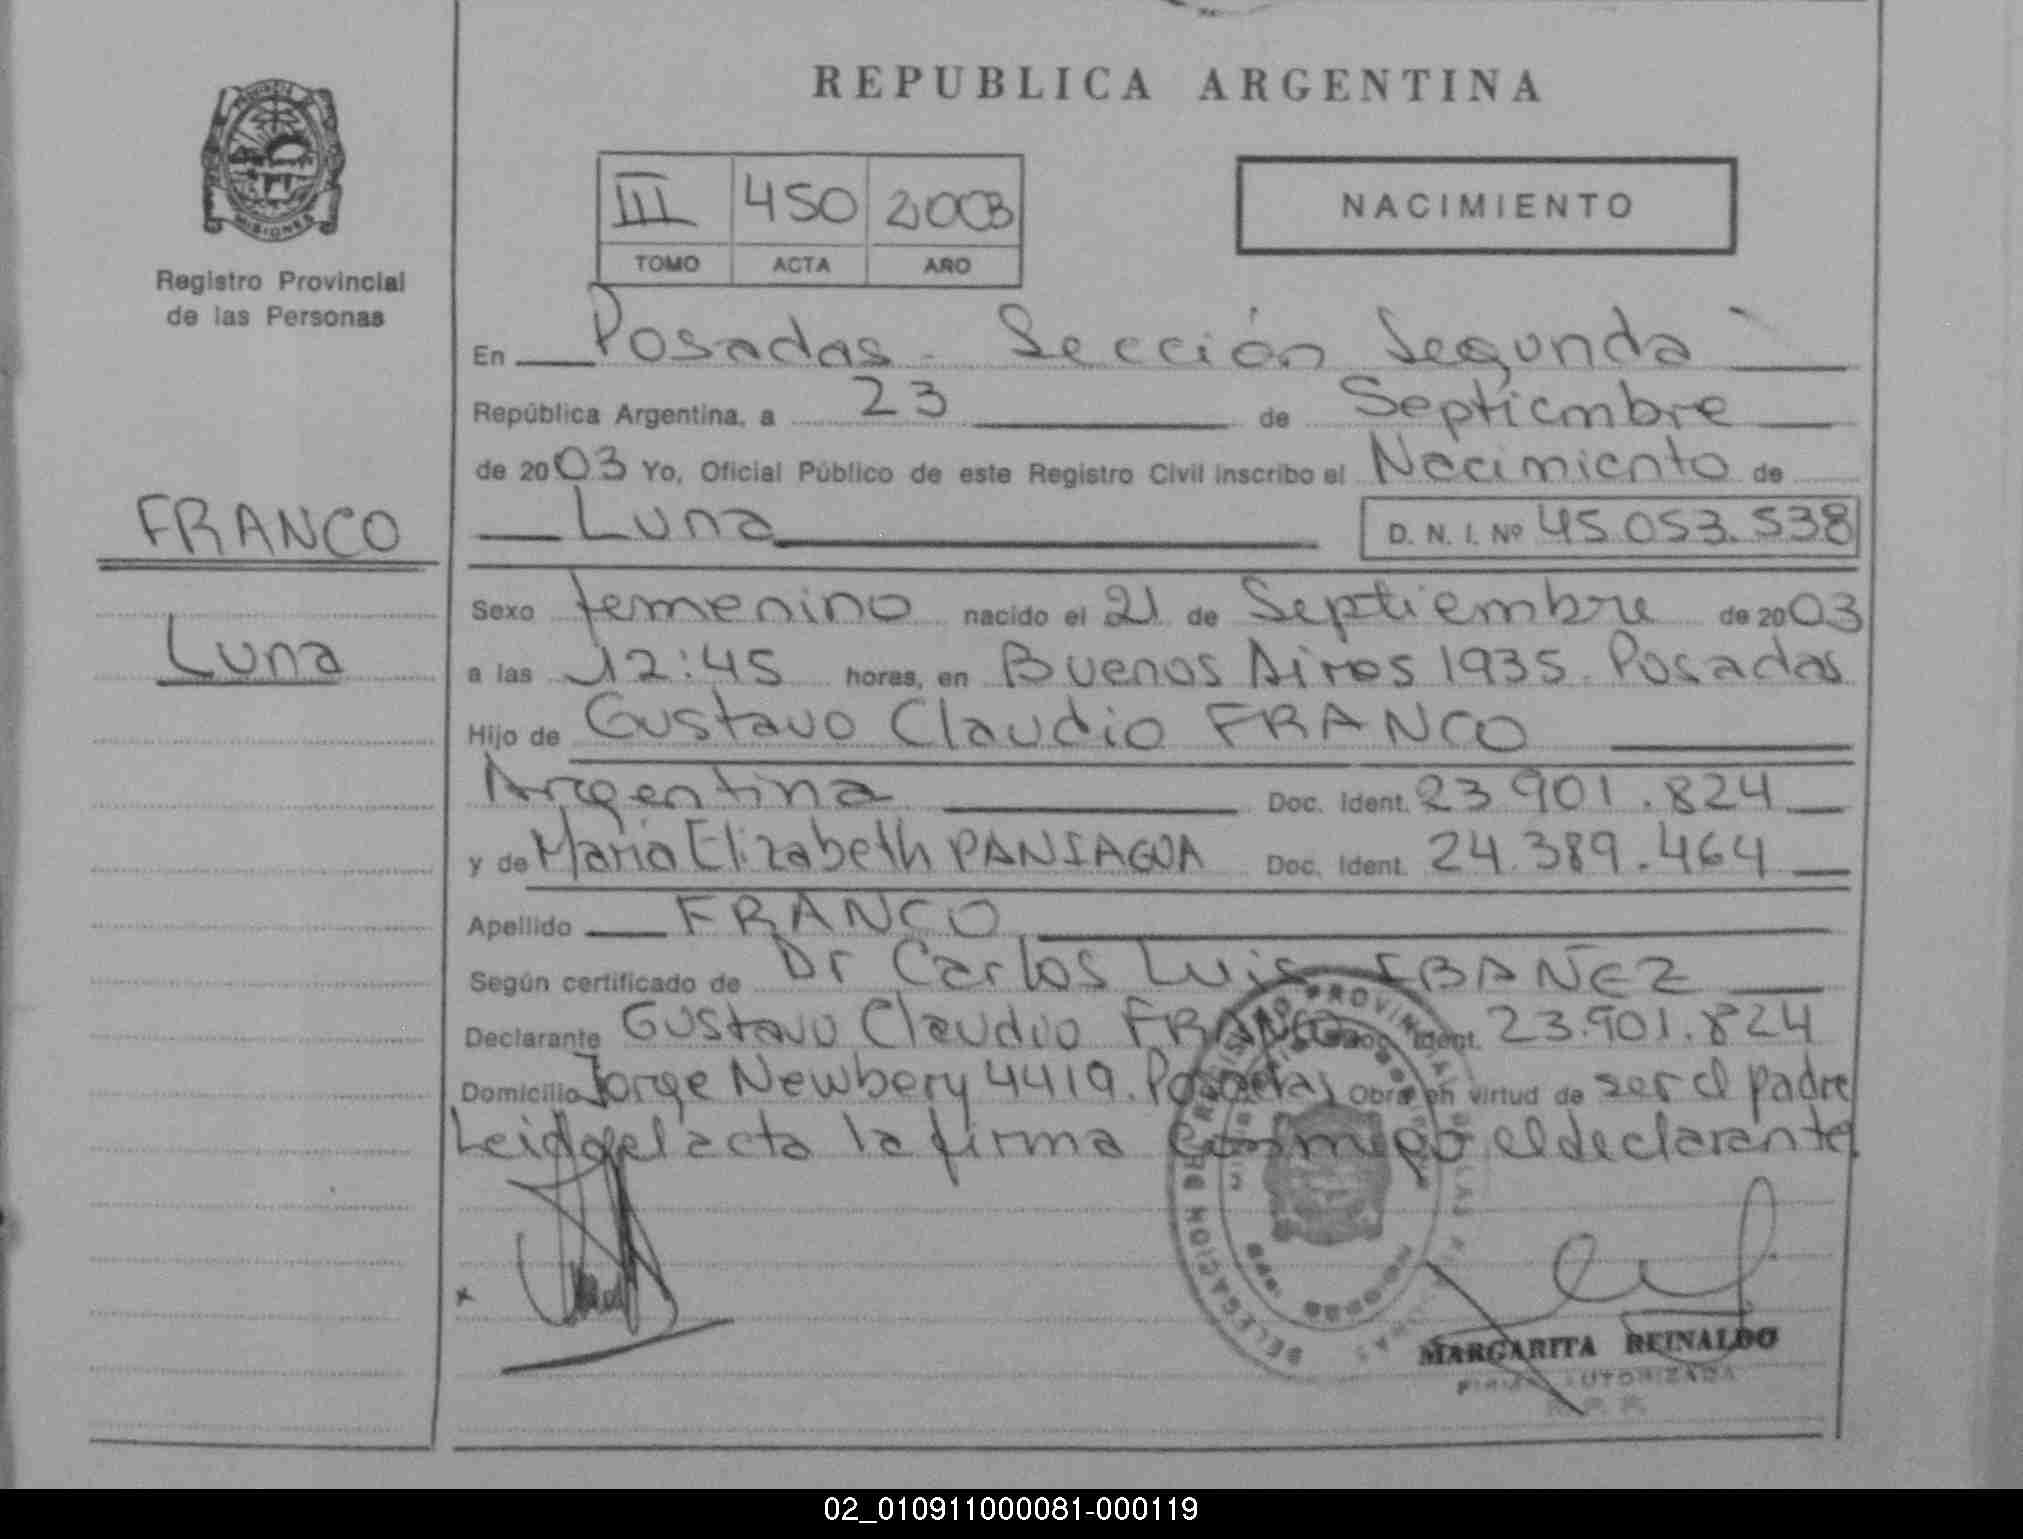 REPUBLICA ARGENTINA
PROVINCIA DE
MISIONES
Registro Provincial
de las Personas
III 450 2003
TOMO ACTA AÑO
NACIMIENTO
En Posadas - Sección Segunda
República Argentina, a 23 de Septiembre
de 2003 Yo, Oficial Público de este Registro Civil inscribo el Nacimiento de
Luna D. N. I. Nº 45.053.538
FRANCO
Luna
Sexo femenino nacido el 21 de Septiembre de 2003
a las 12:45 horas, en Buenos Aires 1935. Posadas
Hijo de Gustavo Claudio FRANCO
Argentina Doc. Ident. 23.901.824
y de Maria Elizabeth PANIAGUA Doc. Ident. 24.389.464
Apellido FRANCO
Según certificado de Dr Carlos Luis IBAÑEZ
Declarante Gustavo Claudio FRANCO Doc. Ident. 23.901.824
Domicilio Jorge Newbery 4419. Posadas Obra en virtud de ser el padre
Leida el acta la firma conmigo el declarante
REGISTRO PROVINCIAL DE LAS PERSONAS
DELEGACION
MARGARITA REINALDO
FIRMA AUTORIZADA
02_010911000081-000119